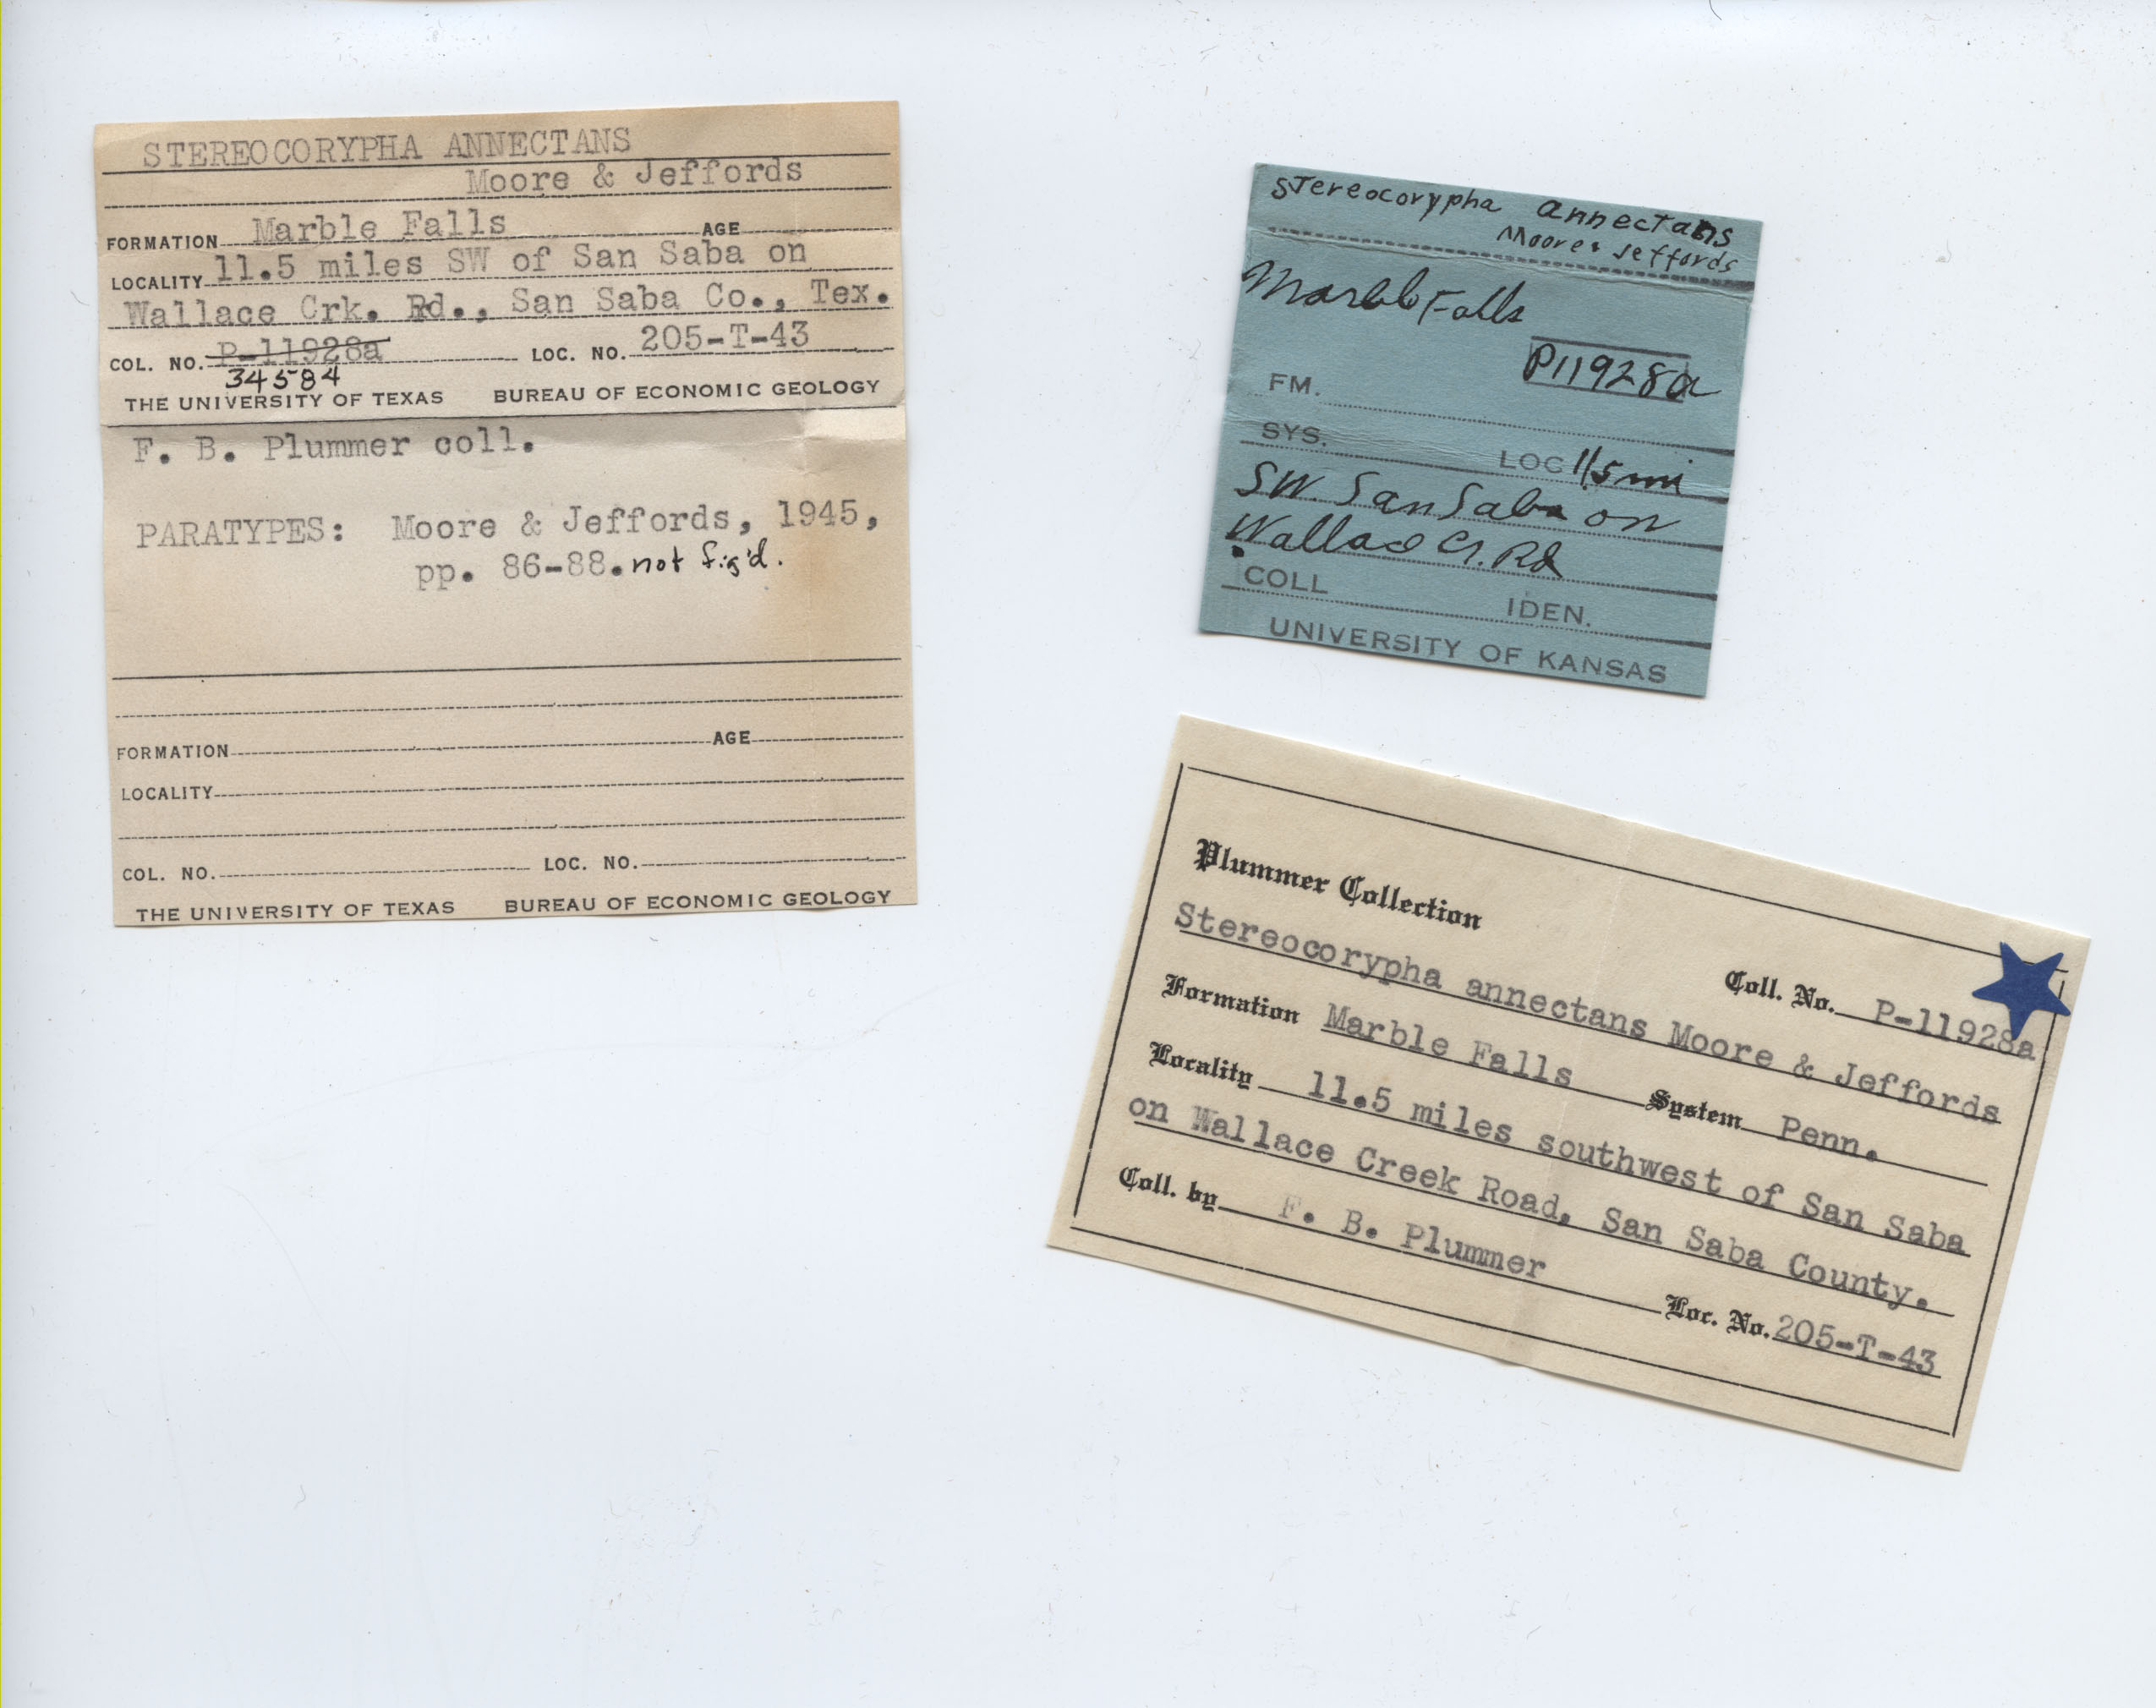 STEREOCORYPHA ANNECTANS
Moore & Jeffords
FORMATION Marble Falls AGE
LOCALITY 11.5 miles SW of San Saba on
Wallace Crk. Rd., San Saba Co., Tex.
COL. NO. P-11928a LOC. NO. 205-T-43
34584
THE UNIVERSITY OF TEXAS BUREAU OF ECONOMIC GEOLOGY
F. B. Plummer coll.
PARATYPES: Moore & Jeffords, 1945,
pp. 86-88. not fig'd.
FORMATION AGE
LOCALITY
COL. NO. LOC. NO.
THE UNIVERSITY OF TEXAS BUREAU OF ECONOMIC GEOLOGY
Stereocorypha annectans
Moore & Jeffords
Marble Falls
P11928a
FM.
SYS.
LOC 11.5 mi
SW. San Saba on
Wallace Cr. Rd
COLL IDEN.
UNIVERSITY OF KANSAS
Plummer Collection
Coll. No. P-11928a
Stereocorypha annectans Moore & Jeffords
Formation Marble Falls System Penn.
Locality 11.5 miles southwest of San Saba
on Wallace Creek Road, San Saba County.
Coll. by F. B. Plummer
Loc. No. 205-T-43